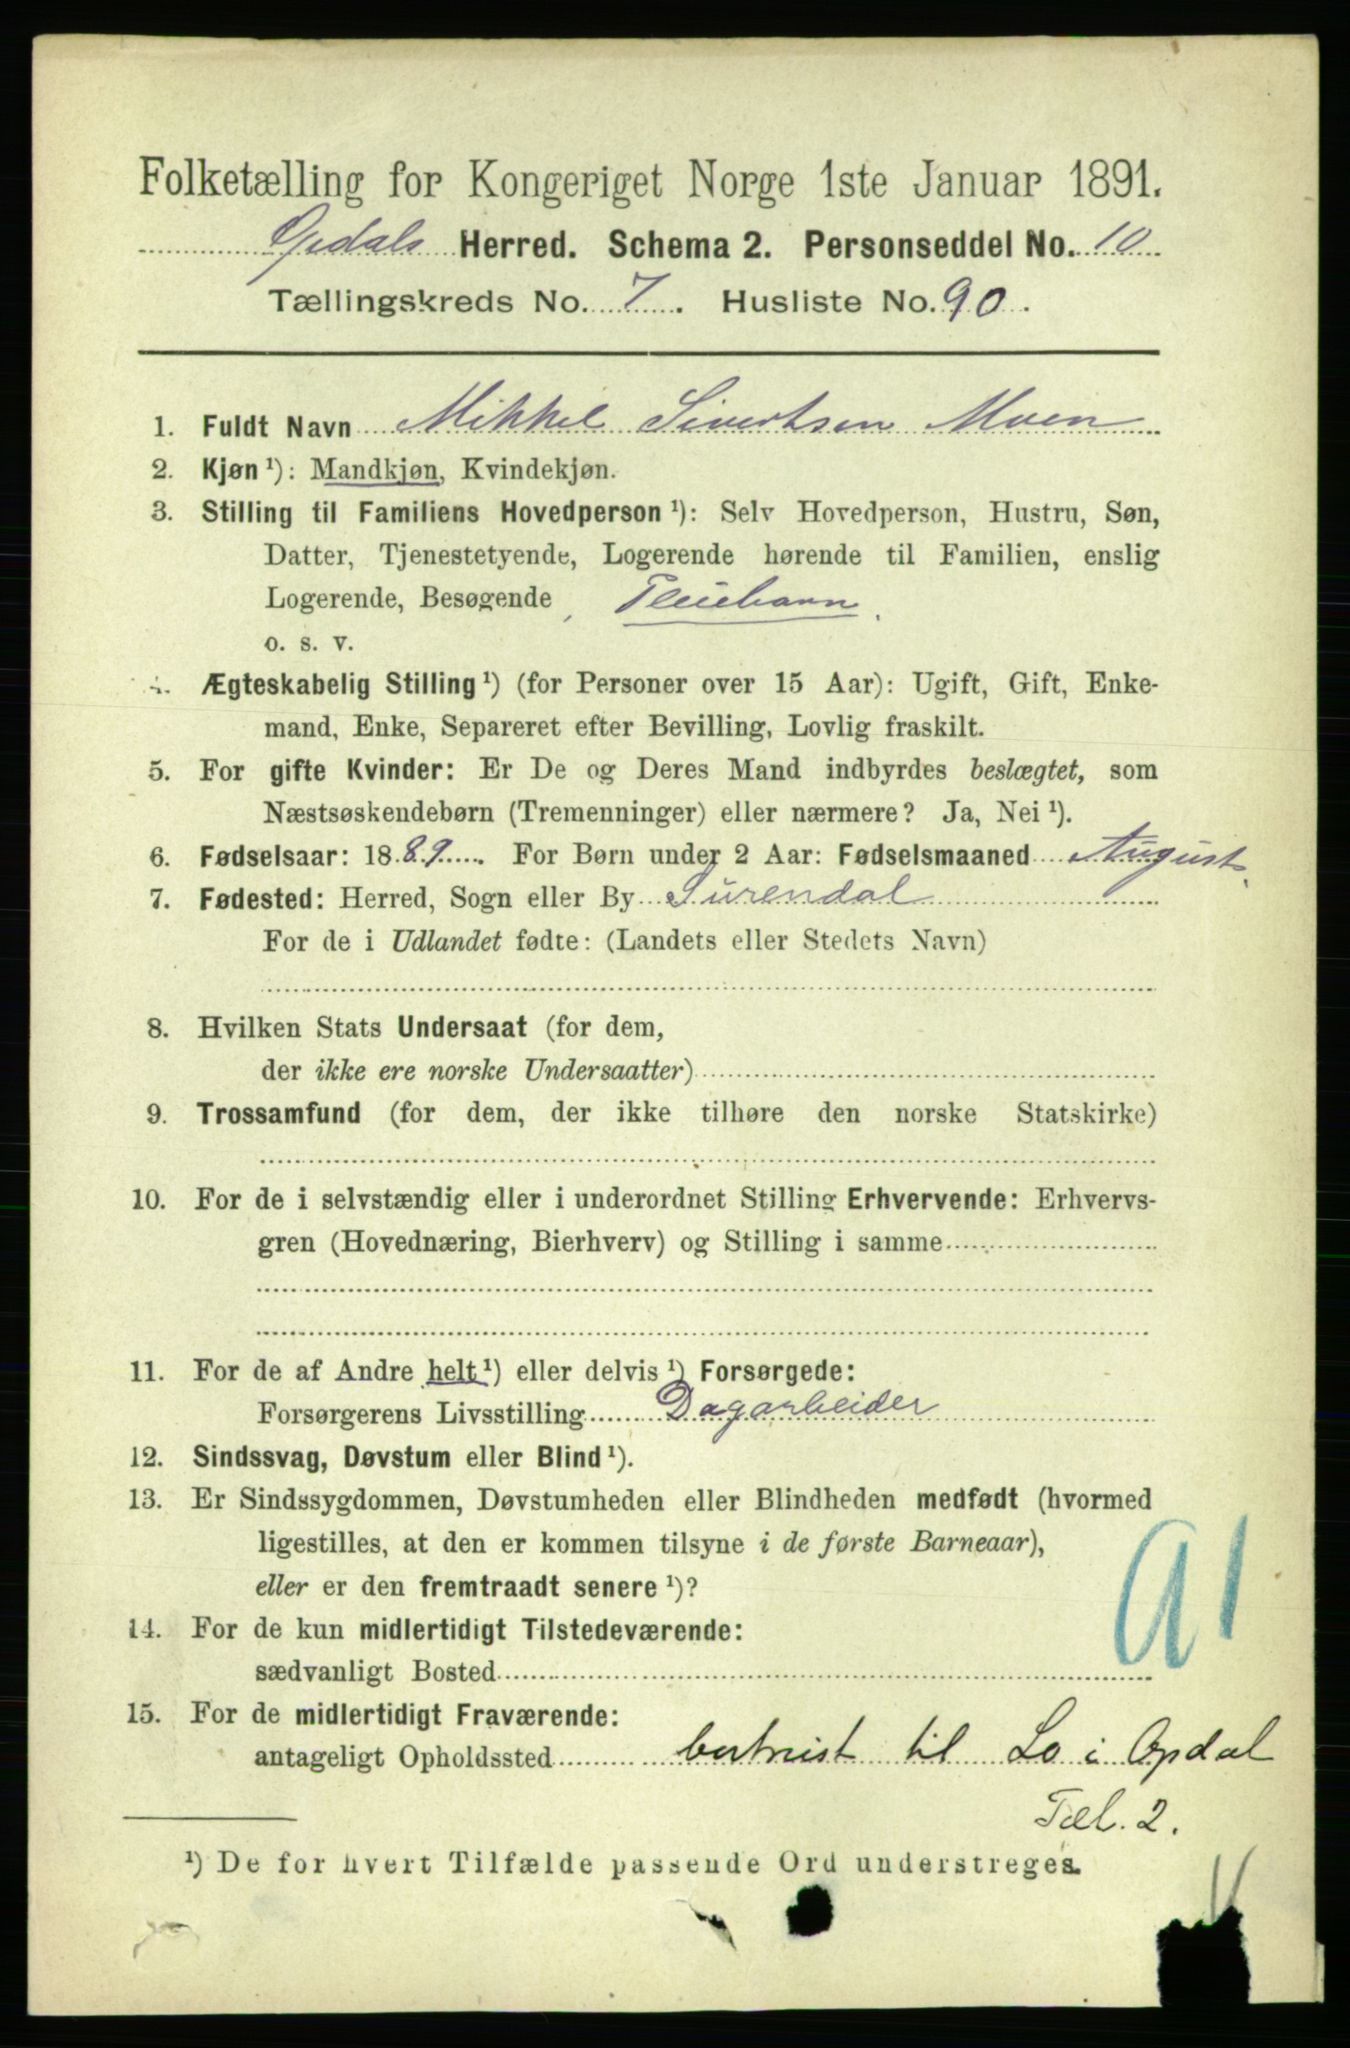 Folketælling for Kongeriget Norge 1ste Januar 1891.
Opdals Herred. Schema 2. Personseddel No. 10
Tællingskreds No. 7. Husliste No. 90.
1. Fuldt Navn Mikkel Sivertsen Moen
2. Kjøn ¹): Mandkjøn, Kvindekjøn.
3. Stilling til Familiens Hovedperson ¹): Selv Hovedperson, Hustru, Søn,
Datter, Tjenestetyende, Logerende hørende til Familien, enslig
Logerende, Besøgende, Pleiebarn.
o. s. v.
4. Ægteskabelig Stilling ¹) (for Personer over 15 Aar): Ugift, Gift, Enke-
mand, Enke, Separeret efter Bevilling, Lovlig fraskilt.
5. For gifte Kvinder: Er De og Deres Mand indbyrdes beslægtet, som
Næstsøskendebørn (Tremenninger) eller nærmere? Ja, Nei ¹).
6. Fødselsaar: 1889. For Børn under 2 Aar: Fødselsmaaned August.
7. Fødested: Herred, Sogn eller By Surendal
For de i Udlandet fødte: (Landets eller Stedets Navn)
8. Hvilken Stats Undersaat (for dem,
der ikke ere norske Undersaatter)
9. Trossamfund (for dem, der ikke tilhøre den norske Statskirke)
10. For de i selvstændig eller i underordnet Stilling Erhvervende: Erhvervs-
gren (Hovednæring, Bierhverv) og Stilling i samme
11. For de af Andre helt ¹) eller delvis ¹) Forsørgede:
Forsørgerens Livsstilling Dagarbeider
12. Sindssvag, Døvstum eller Blind ¹).
13. Er Sindssygdommen, Døvstumheden eller Blindheden medfødt (hvormed
ligestilles, at den er kommen tilsyne i de første Barneaar),
eller er den fremtraadt senere ¹)?
14. For de kun midlertidigt Tilstedeværende:
sædvanligt Bosted
15. For de midlertidigt Fraværende:
antageligt Opholdssted bortreist til Lo i Opdal
Tæl. 2.
¹) De for hvert Tilfælde passende Ord understreges.